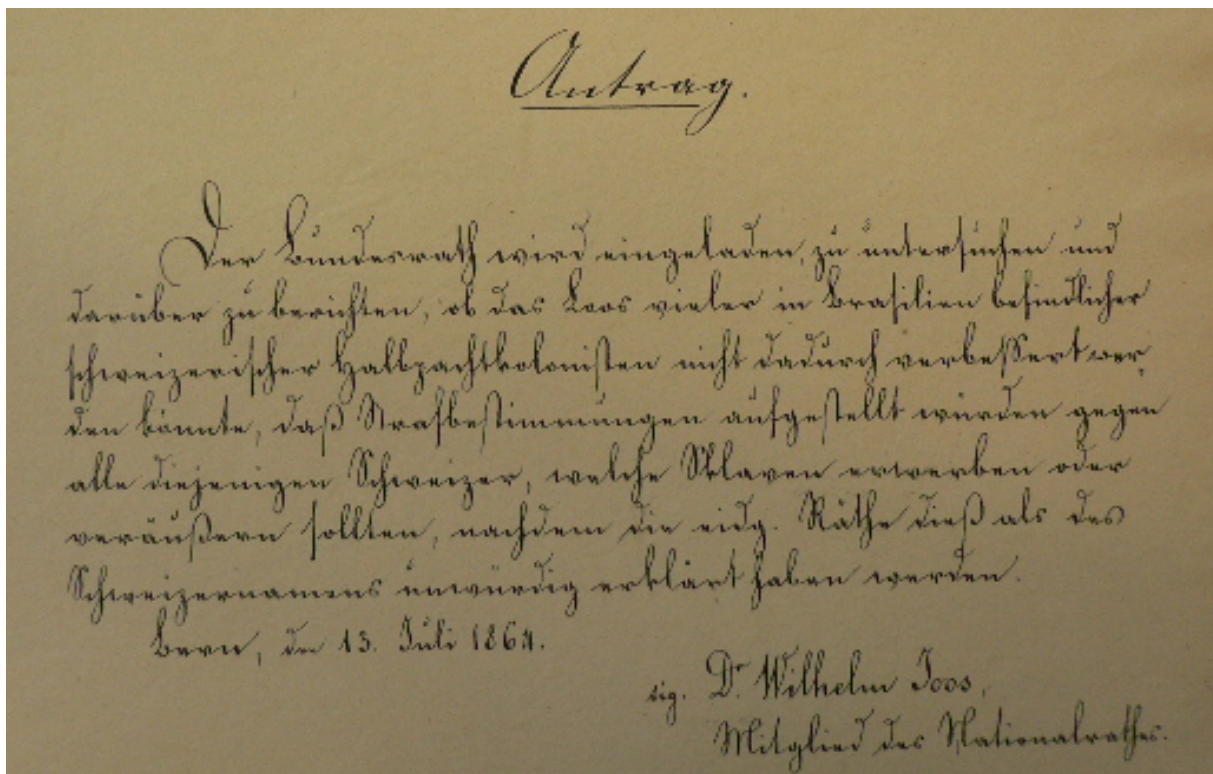 Antrag.
Der Bundesrath wird eingeladen, zu untersuchen und
darüber zu berichten, ob das Loos vieler in Brasilien befindlicher
schweizerischer Halbpachtkolonisten nicht dadurch verbessert wer„
den könnte, daß Strafbestimmungen aufgestellt würden gegen
alle diejenigen Schweizer, welche Sklaven erwerben oder
veräußern sollten, nachdem die eidg. Räthe dieß als des
Schweizernamens unwürdig erklärt haben werden.
Bern, den 13. Juli 1864.
sig. Dr. Wilhelm Joos,
Mitglied des Nationalrathes.